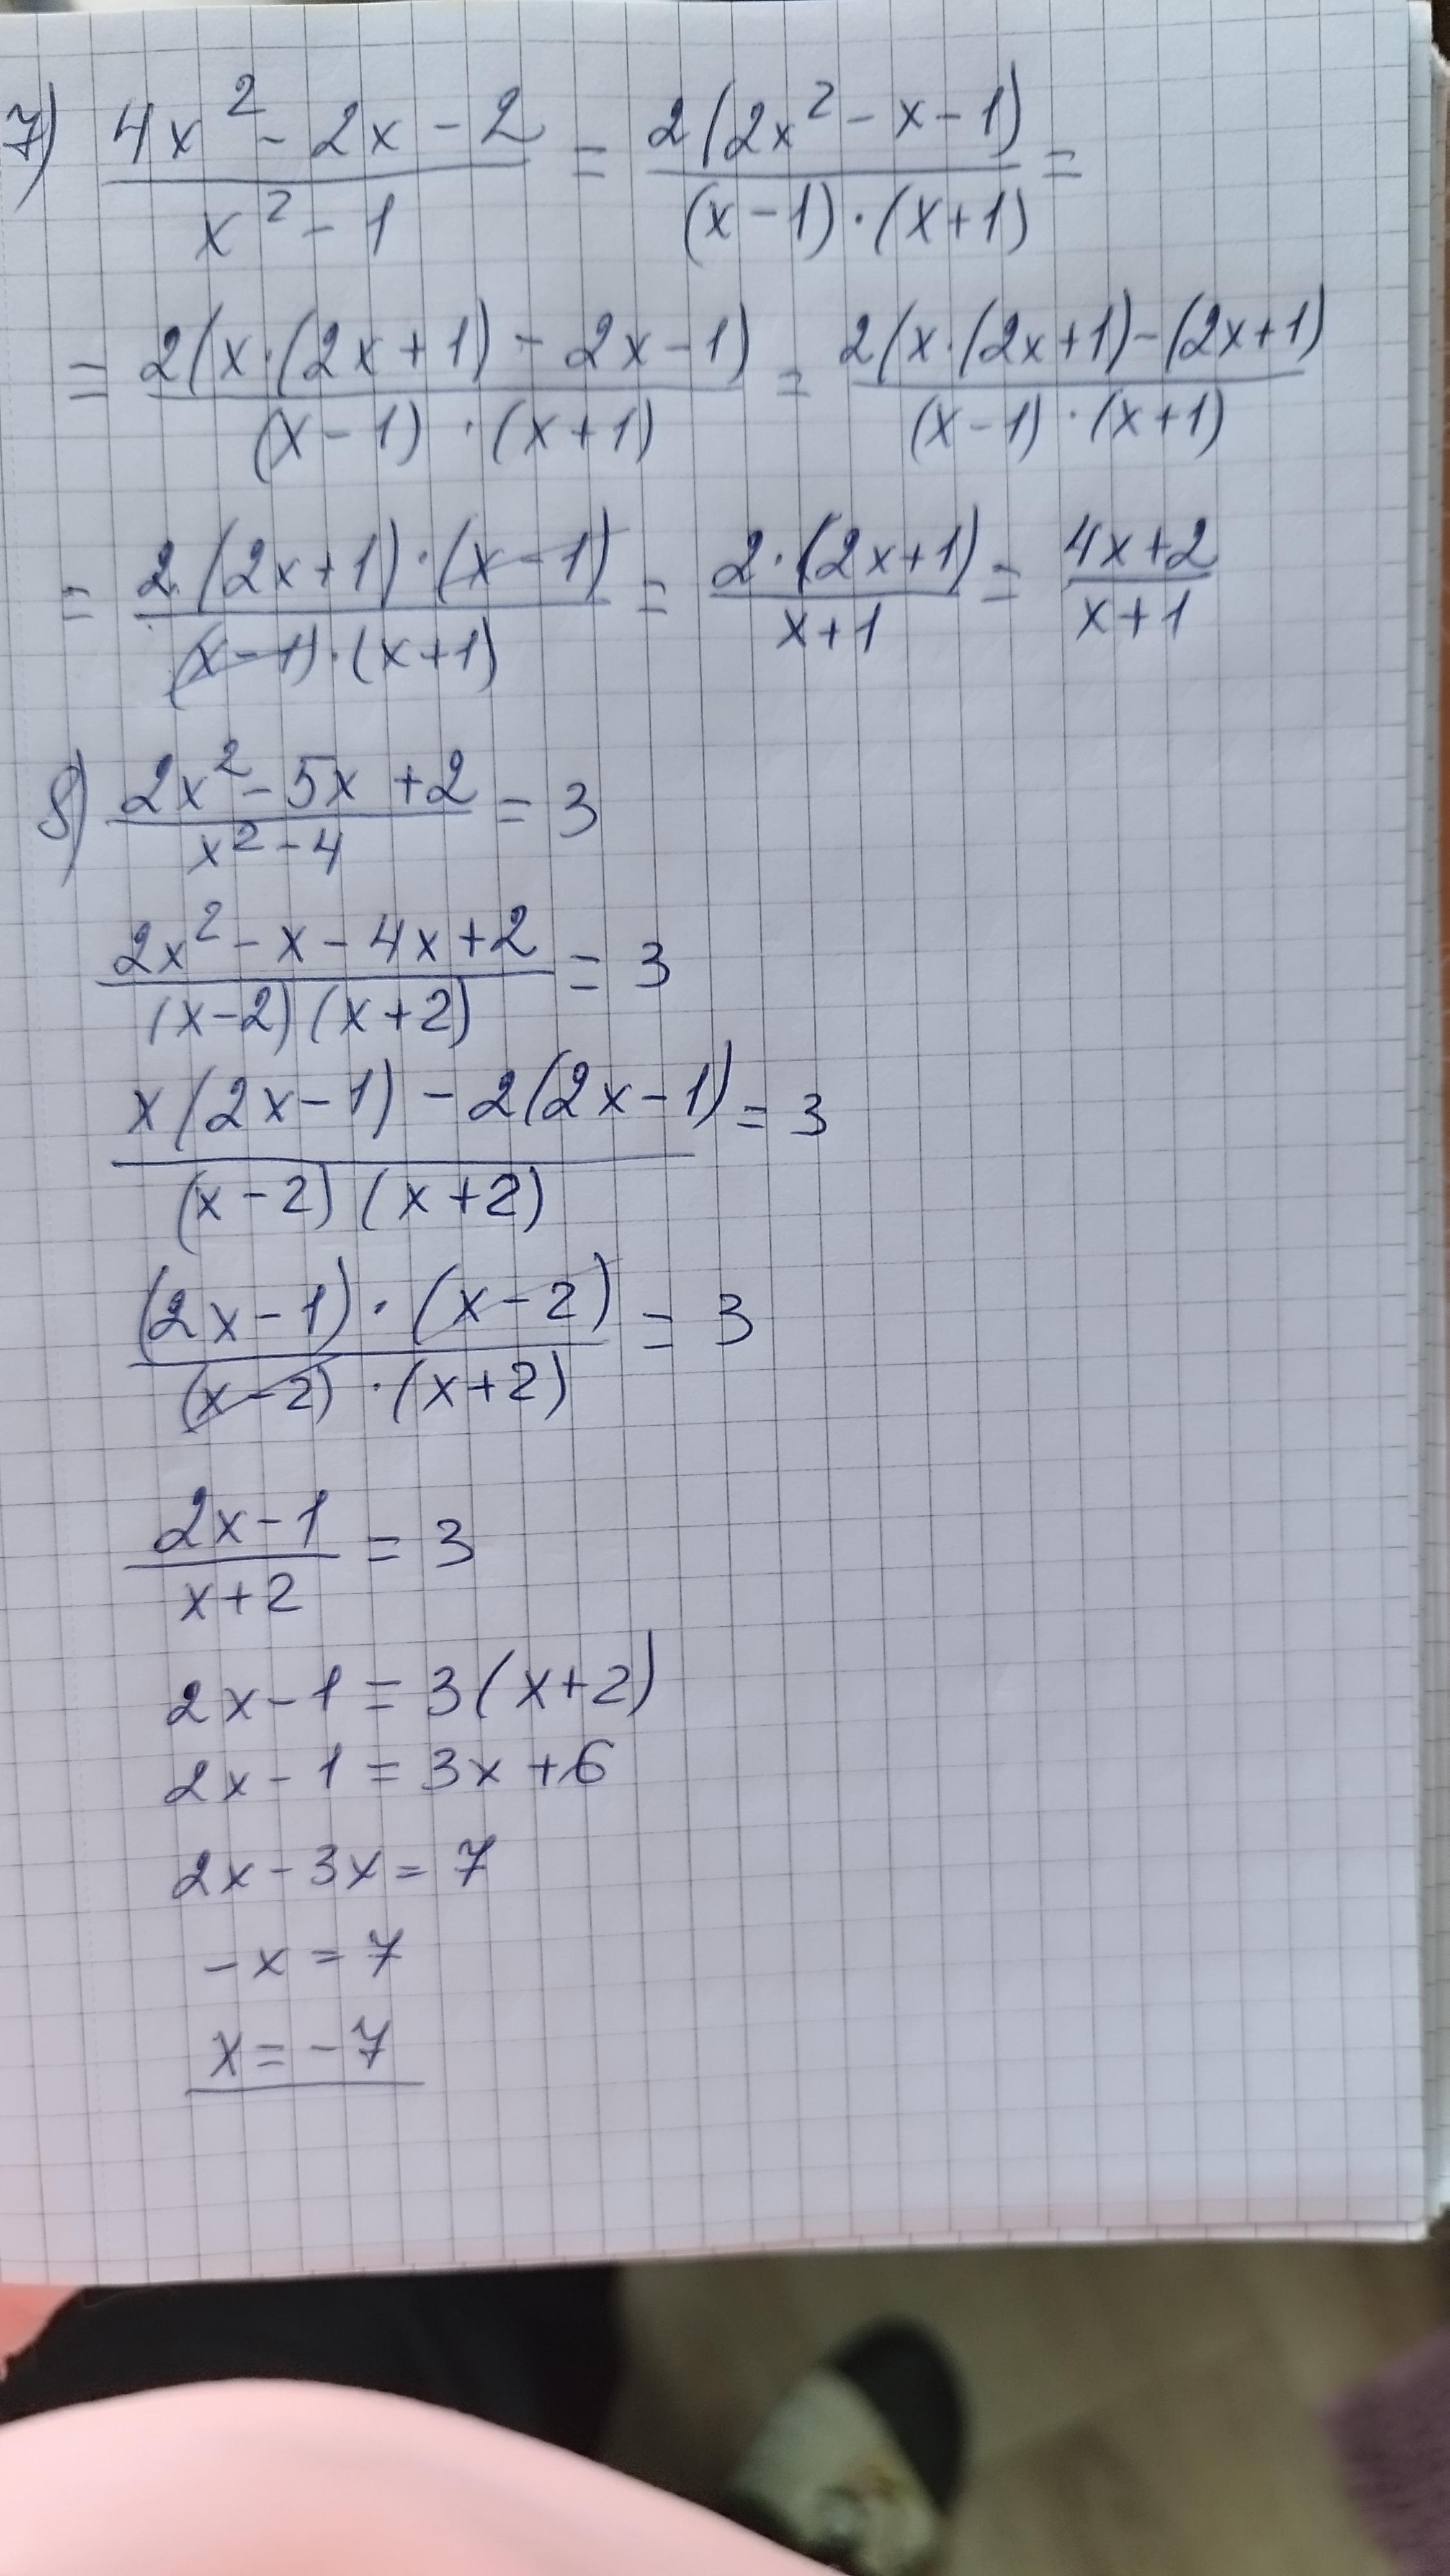 7) (4x² - 2x - 2)/(x² - 1) = 2(2x² - x - 1)/((x - 1)·(x + 1)) =
= 2(x·(2x + 1) - 2x - 1)/((x - 1)·(x + 1)) = 2(x·(2x + 1) - (2x + 1)/((x - 1)·(x + 1))
= 2(2x + 1)·(x - 1)/((x - 1)·(x + 1)) = 2·(2x + 1)/(x + 1) = (4x + 2)/(x + 1)
8) (2x² - 5x + 2)/(x² - 4) = 3
(2x² - x - 4x + 2)/((x - 2)(x + 2)) = 3
(x(2x - 1) - 2(2x - 1))/((x - 2)(x + 2)) = 3
(2x - 1)·(x - 2)/((x - 2)·(x + 2)) = 3
(2x - 1)/(x + 2) = 3
2x - 1 = 3(x + 2)
2x - 1 = 3x + 6
2x - 3x = 7
- x = 7
x = - 7